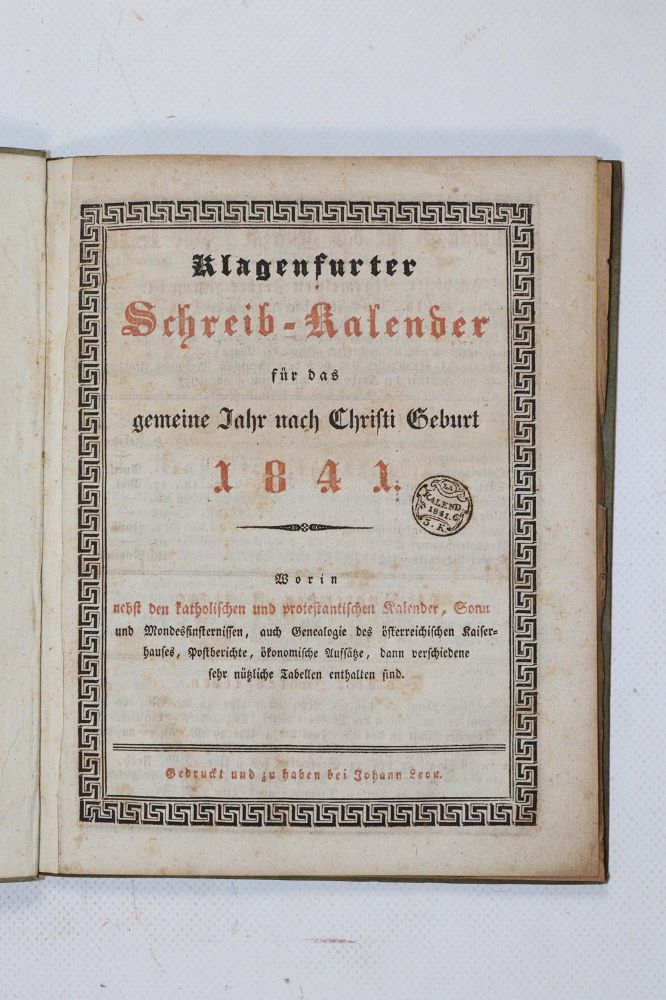 Klagenfurter
Schreib-Kalender
für das
gemeine Jahr nach Christi Geburt
1841.
LA
KALEND.
1841. C
3. K.
Worin
nebst den katholischen und protestantischen Kalender, Sonn
und Mondesfinsternissen, auch Genealogie des österreichischen Kaiser-
hauses, Postberichte, ökonomische Aufsätze, dann verschiedene
sehr nützliche Tabellen enthalten sind.
Gedruckt und zu haben bei Johann Leon.